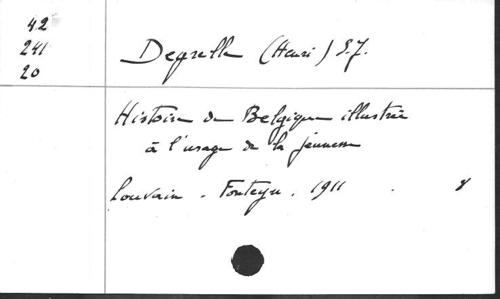 42
241
20
Degrelle (Henri) S.J.
Histoire de Belgique illustrée
à l'usage de la jeunesse
Louvain. Fonteyn. 1911. 8